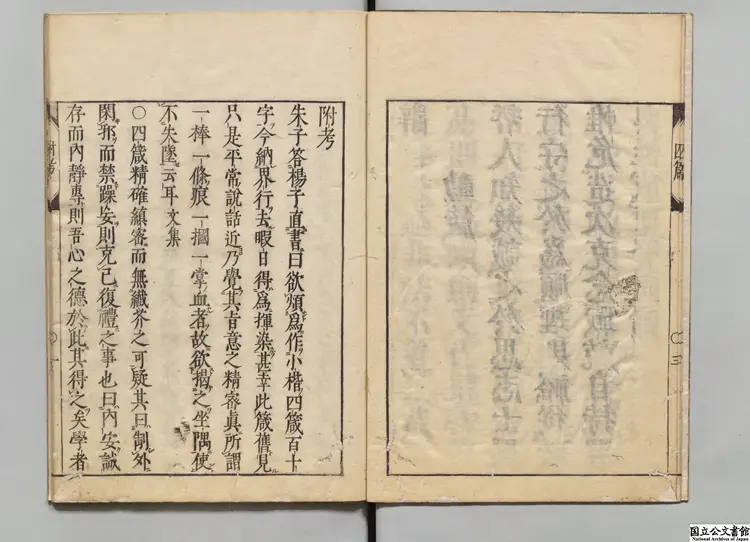 四箴
〇三
附考
朱子答楊子直書曰欲煩爲作小楷四箴百十
字今納界行去暇日得爲揮染甚幸此箴舊見
只是平常說話近乃覺其旨意之精密眞所謂
一棒一條痕一摑一掌血者故欲揭之坐隅使
不失墜云耳文集
〇四箴精確縝密而無纖芥之可疑其曰制外
閑邪而禁躁妄則克己復禮之事也曰內安誠
存而內靜專則吾心之德於此其得之矣學者
附考
〇一
国立公文書館
National Archives of Japan